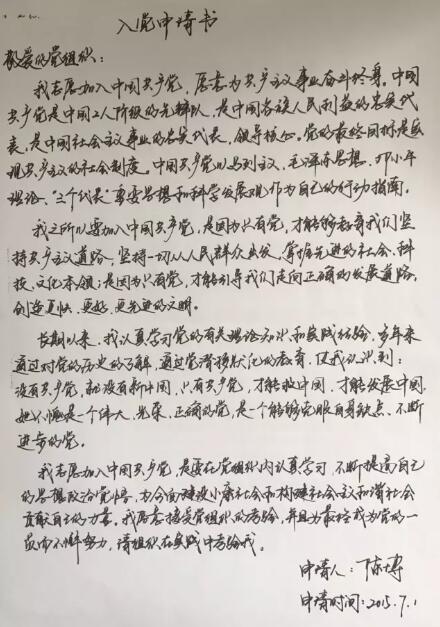 入党申请书
敬爱的党组织:
我志愿加入中国共产党,愿意为共产主义事业奋斗终身。中国
共产党是中国工人阶级的先锋队,是中国各族人民利益的忠实代
表,是中国社会主义事业的忠实代表,领导核心。党的最终目标是实
现共产主义的社会制度。中国共产党以马列主义,毛泽东思想,邓小平
理论,“三个代表”重要思想和科学发展观作为自己的行动指南。
我之所以要加入中国共产党,是因为只有党,才能够教育我们坚
持共产主义道路,坚持一切从人民群众出发,掌握先进的社会、科
技、文化本领;是因为只有党,才能引导我们走向正确的发展道路,
创造更快、更好、更先进的文明。
长期以来,我认真学习党的有关理论知识和实践经验,多年来
通过对党的历史的了解,通过党背移状况的教育,使我认识到:
没有共产党,就没有新中国,只有共产党,才能救中国,才能发展中国,
她不愧是一个伟大、光荣、正确的党,是一个能够克服自身缺点、不断
进步的党。
我志愿加入中国共产党,是要在党组织内认真学习,不断提高自己
的思想政治觉悟,为全面建设小康社会和构建社会主义和谐社会
贡献自己的力量。我愿意接受党组织的考验,并且为最终成为党的一
员而不懈努力,请组织在实践中考验我。
申请人:陈博
申请时间:2015.7.1